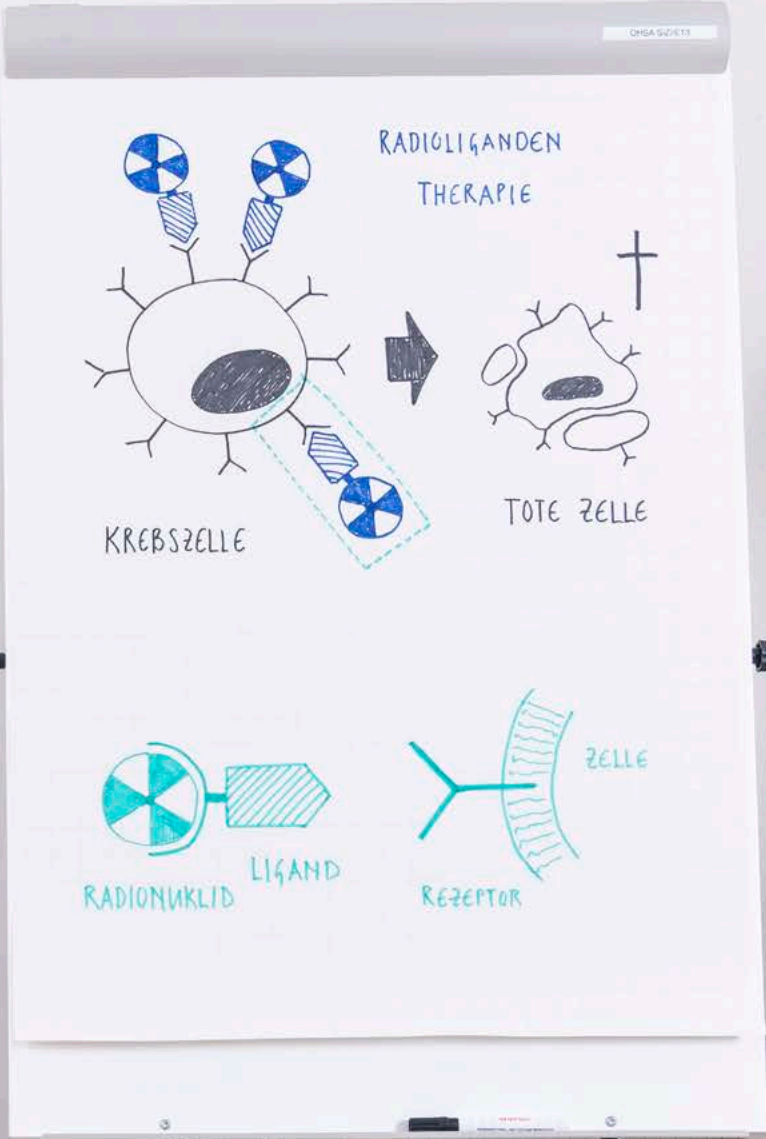 RADIOLIGANDEN
THERAPIE
KREBSZELLE
TOTE ZELLE
ZELLE
LIGAND
RADIONUKLID
REZEPTOR